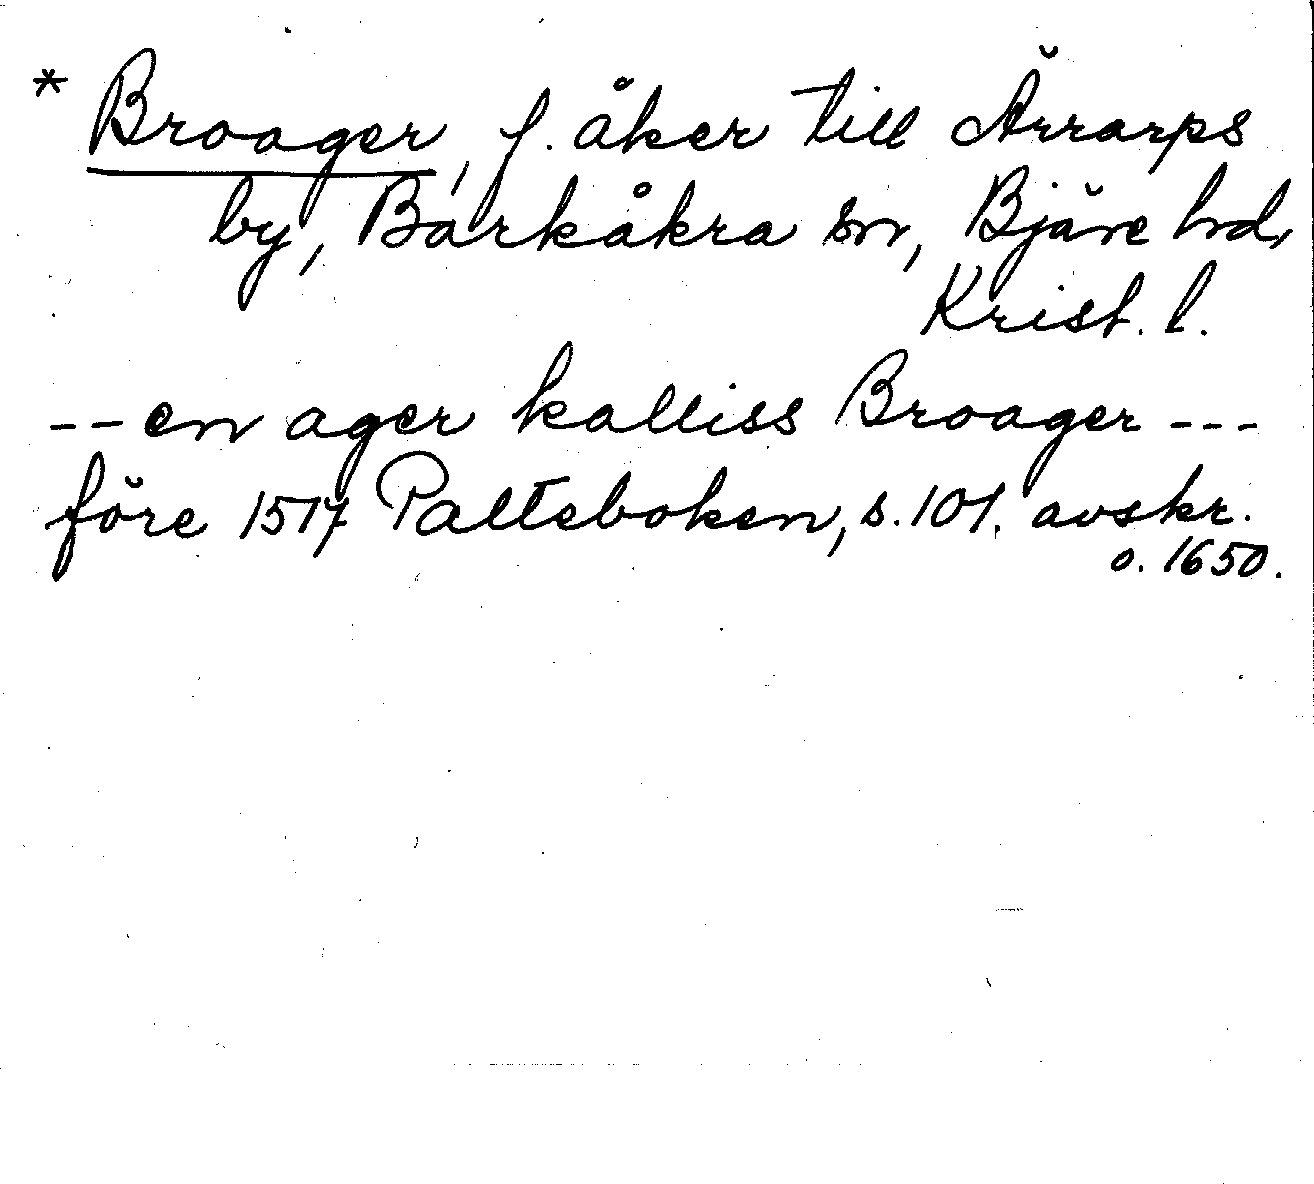 * Broager, f. åker till Ärrarps
by, Barkåkra sn, Bjäre hd,
Krist. l.
-- en ager kalliss Broager ---
före 1517 Palteboken, s. 101. avskr.
o. 1650.